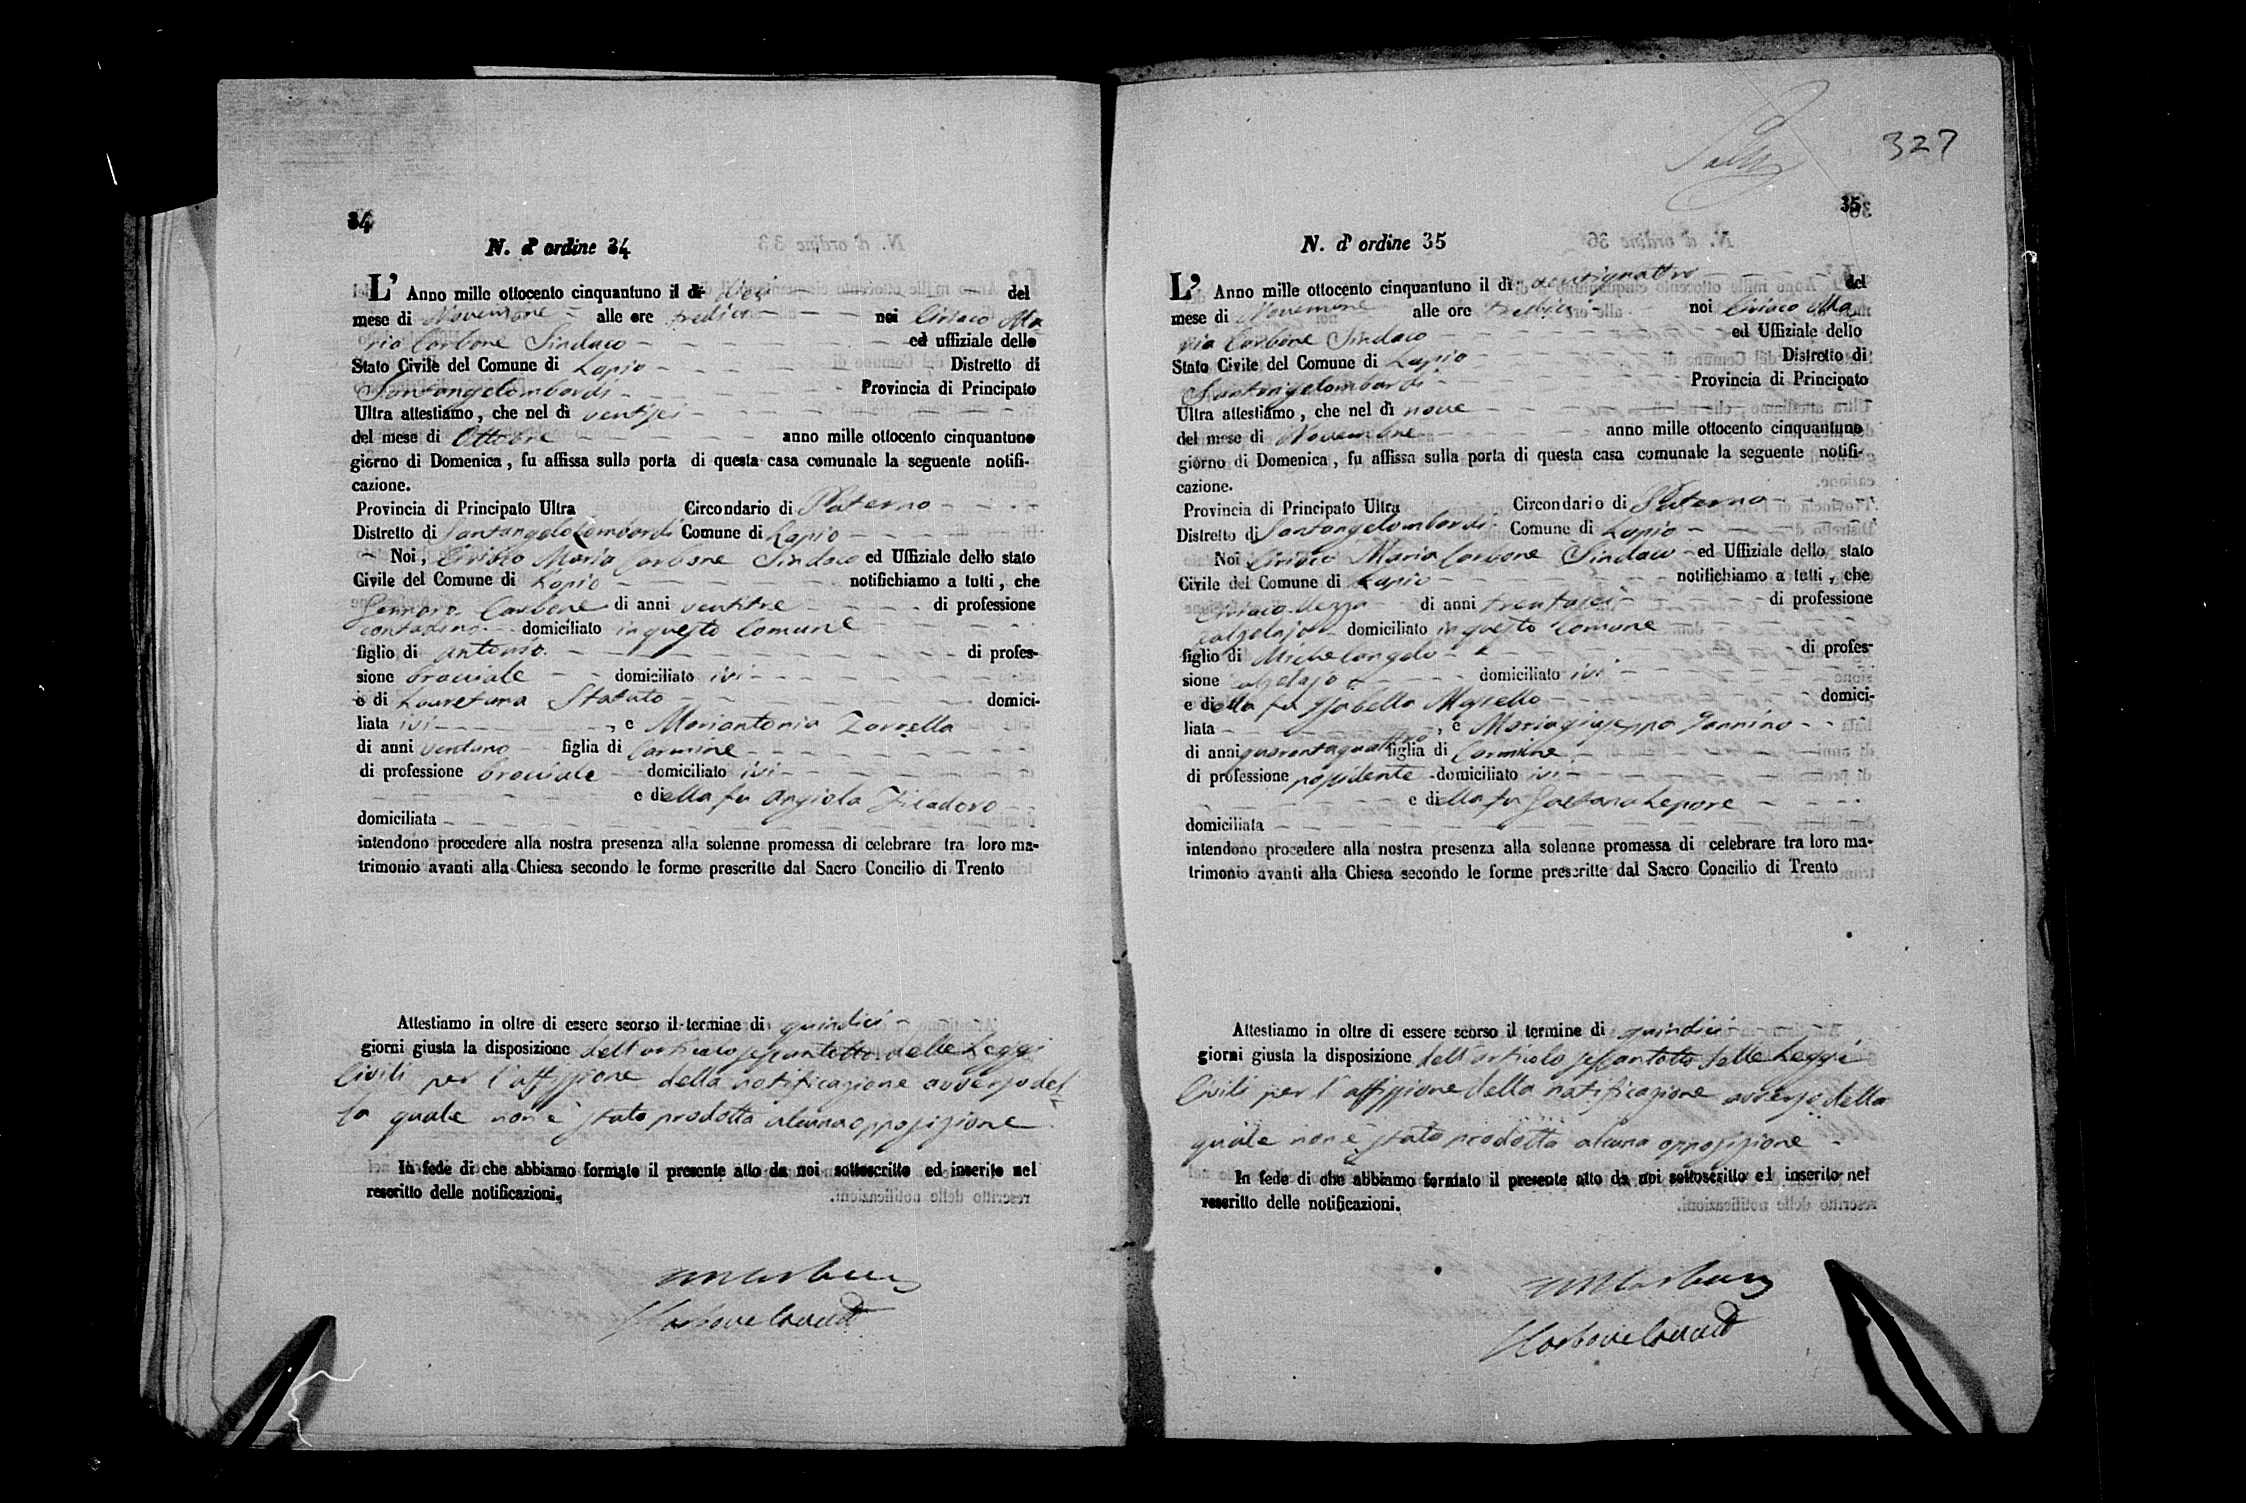 34
N. d' ordine 34
L' Anno mille ottocento cinquantuno il di dieci del
mese di Novembre alle ore tredici noi Ciriaco Ma
ria Carbone Sindaco ed uffiziale dello
Stato Civile del Comune di Lapio Distretto di
Santangelombardi Provincia di Principato
Ultra attestiamo, che nel dì ventisei
del mese di Ottobre anno mille ottocento cinquantuno
giorno di Domenica, fu affissa sulla porta di questa casa comunale la seguente notifi-
cazione.
Provincia di Principato Ultra Circondario di Paterno
Distretto di Santangelolombardi Comune di Lapio
Noi, Ciriaco Maria Carbone Sindaco ed Uffiziale dello stato
Civile del Comune di Lapio notifichiamo a tutti, che
Gennaro Carbone di anni ventitre di professione
contadino domiciliato in questo Comune
figlio di Antonio di profes-
sione bracciale domiciliato ivi
e di Lauretana Statuto domici-
liata ivi, e Mariantonia Zarrella
di anni ventuno figlia di Carmine
di professione bracciale domiciliato ivi
e della fu Angiola Filadoro
domiciliata
intendono procedere alla nostra presenza alla solenne promessa di celebrare tra loro ma-
trimonio avanti alla Chiesa secondo le forme prescritte dal Sacro Concilio di Trento
Attestiamo in oltre di essere scorso il termine di quindici
giorni giusta la disposizione dell'articolo sessantotto delle Leggi
Civili per l'affissione della notificazione avverso del
la quale non è stata prodotta alcuna opposizione
In fede di che abbiamo formato il presente atto da noi sottoscritto ed inserito nel
rescritto delle notificazioni.
327
35
N. d' ordine 35
L' Anno mille ottocento cinquantuno il di ventiquattro del
mese di Novembre alle ore tredici noi Ciriaco Ma
ria Carbone Sindaco ed Uffiziale dello
Stato Civile del Comune di Lapio Distretto di
Santangelombardi Provincia di Principato
Ultra attestiamo, che nel dì nove
del mese di Novembre anno mille ottocento cinquantuno
giorno di Domenica, fu affissa sulla porta di questa casa comunale la seguente notifi-
cazione.
Provincia di Principato Ultra Circondario di Paterno
Distretto di Santangelombardi Comune di Lapio
Noi Ciriaco Maria Carbone Sindaco ed Uffiziale dello stato
Civile del Comune di Lapio notifichiamo a tutti, che
di anni trentasei di professione
calzolajo domiciliato in questo Comune
figlio di Michelangelo di profes-
sione calzolajo domiciliato ivi
e della fu Isabella domici-
liata, e Mariagiuseppa
di anni quarantaquattro figlia di Carmine
di professione possidente domiciliato ivi
e della fu Gaetana Lepore
domiciliata
intendono procedere alla nostra presenza alla solenne promessa di celebrare tra loro ma-
trimonio avanti alla Chiesa secondo le forme prescritte dal Sacro Concilio di Trento
Attestiamo in oltre di essere scorso il termine di quindici
giorni giusta la disposizione dell'articolo sessantotto delle Leggi
Civili per l'affissione della notificazione avverso della
quale non è stata prodotta alcuna opposizione
In fede di che abbiamo formato il presente atto da noi sottoscritto ed inserito nel
rescritto delle notificazioni.